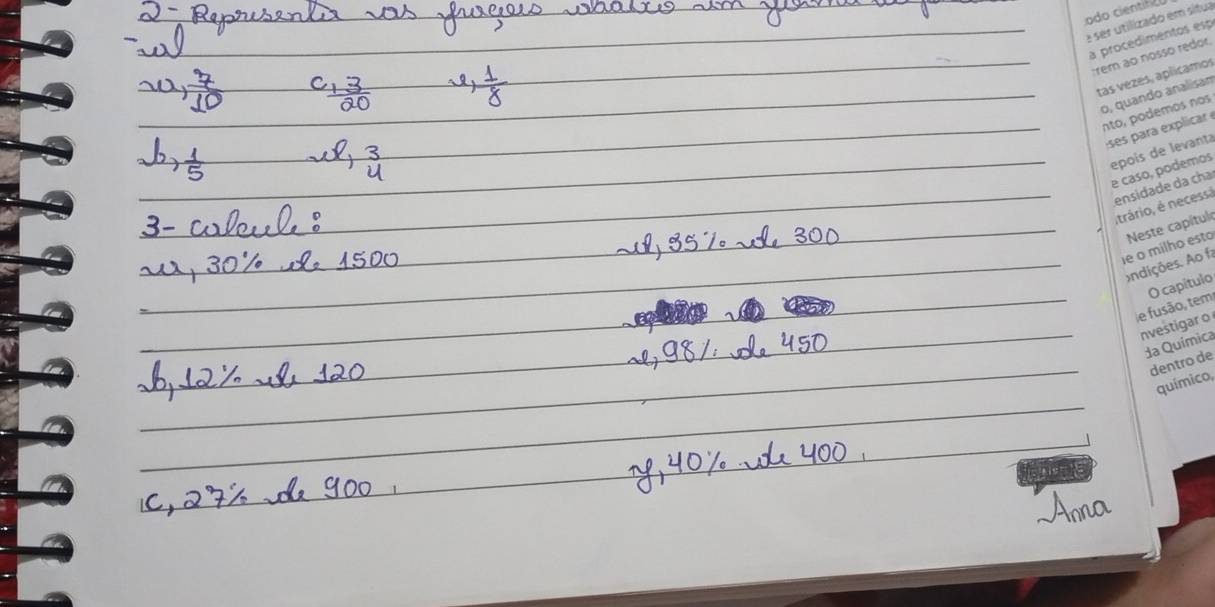 2- Represente as frações abaixo em forma
a, 7/10 c, 3/20 e, 1/8
b, 1/5 d, 3/4
3- calcule:
a, 30% de 1500 d, 35% de 300
b, 12% de 120 e, 98% de 450
c, 27% de 900 f, 40% de 400
Anna
ser utilizado em
a procedimentos
rem ao nosso redor.
tas vezes, aplicamos
o, quando analisam
nto, podemos nos
ses para explicar
epois de levanta
e caso, podemos
ensidade da cha
trário, é necessá
Neste capítulo
e o milho esto
ondições. Ao fa
O capítulo
e fusão, tem
nvestigar o
da Química
dentro de
químico,